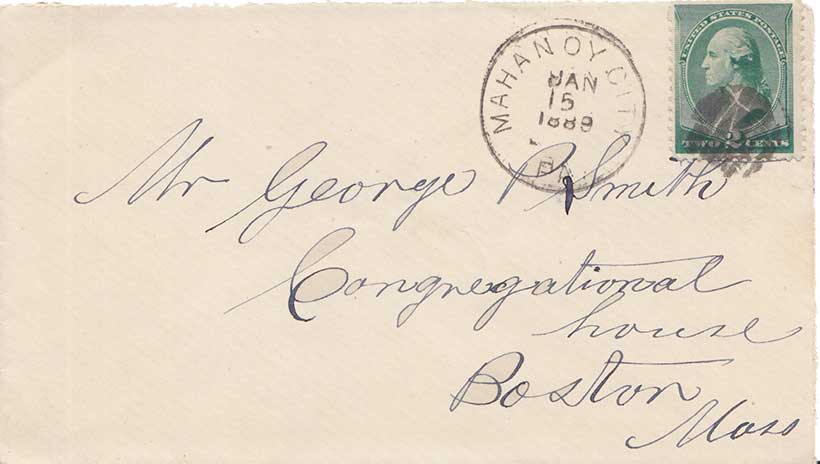 MAHANOY CITY
JAN
15
1889
PA.
UNITED STATES POSTAGE
TWO 2 CENTS
Mr George P. Smith
Congregational
house
Boston
Mass